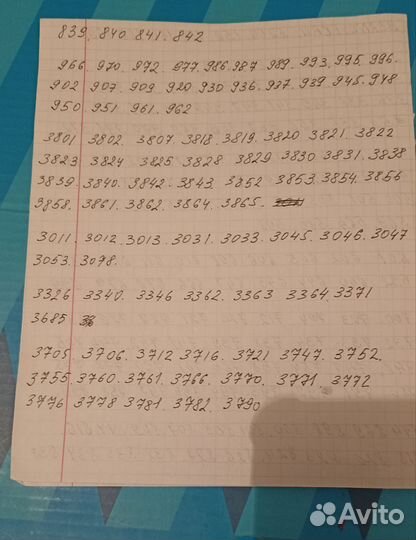 839. 840 841. 842
966. 970. 972. 977. 986. 987. 989. 993. 995. 996.
902 907. 909. 920 930 936. 937. 939 945. 948
950. 951 961. 962
3801 3802. 3807. 3818. 3819. 3820 3821. 3822
3823 3824 3825 3828 3829 3830 3831. 3838
3839. 3840. 3842. 3843. 3852 3853 3854. 3856
3858. 3861. 3862. 3864. 3865.
3011. 3012. 3013. 3031. 3033. 3045. 3046. 3047
3053. 3078.
3326 3340. 3346 3362. 3363 3364 3371
3685
3705. 3706. 3712 3716. 3721 3747. 3752.
3755 3760. 3761. 3766. 3770. 3771. 3772
3776 3778 3781. 3782. 3790
Avito